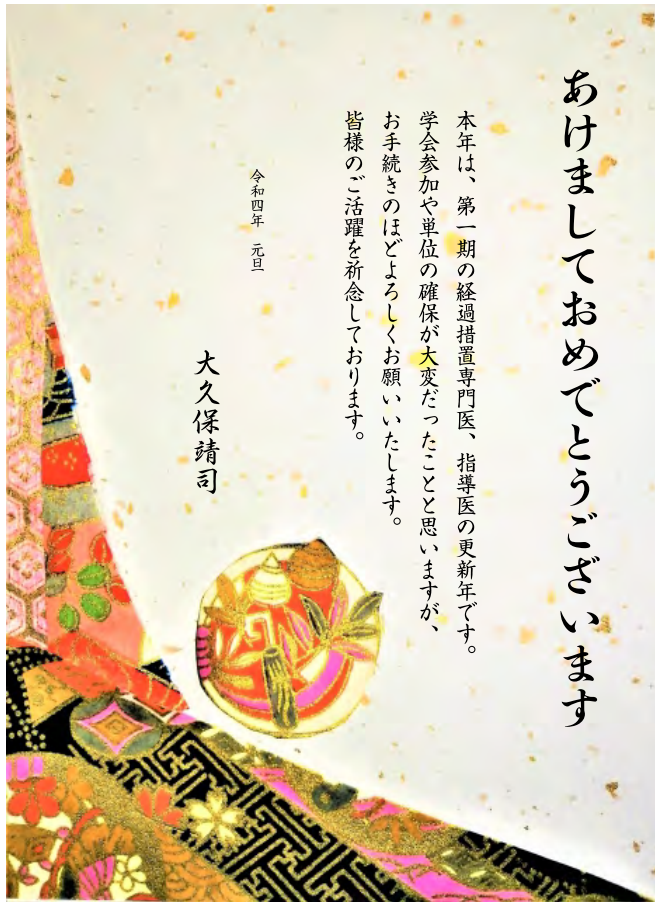 あけましておめでとうございます
本年は、第一期の経過措置専門医、指導医の更新年です。
学会参加や単位の確保が大変だったことと思いますが、
お手続きのほどよろしくお願いいたします。
皆様のご活躍を祈念しております。
令和四年　元旦
大久保靖司